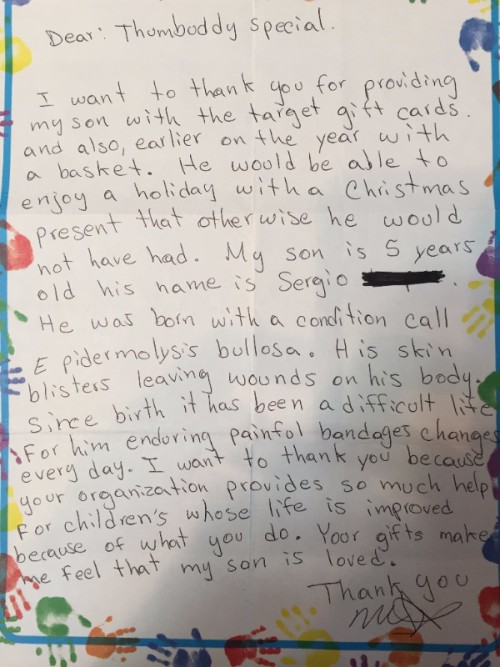 Dear: Thumbuddy special.
I want to thank you for providing
my son with the target gift cards.
and also, earlier on the year with
a basket. He would be able to
enjoy a holiday with a Christmas
present that otherwise he would
not have had. My son is 5 years
old his name is Sergio .
He was born with a condition call
Epidermolysis bullosa. His skin
blisters leaving wounds on his body.
Since birth it has been a difficult life
For him enduring painful bandages changes
every day. I want to thank you because
your organization provides so much help
For children's whose life is improved
because of what you do. Your gifts make
me feel that my son is loved.
Thank you